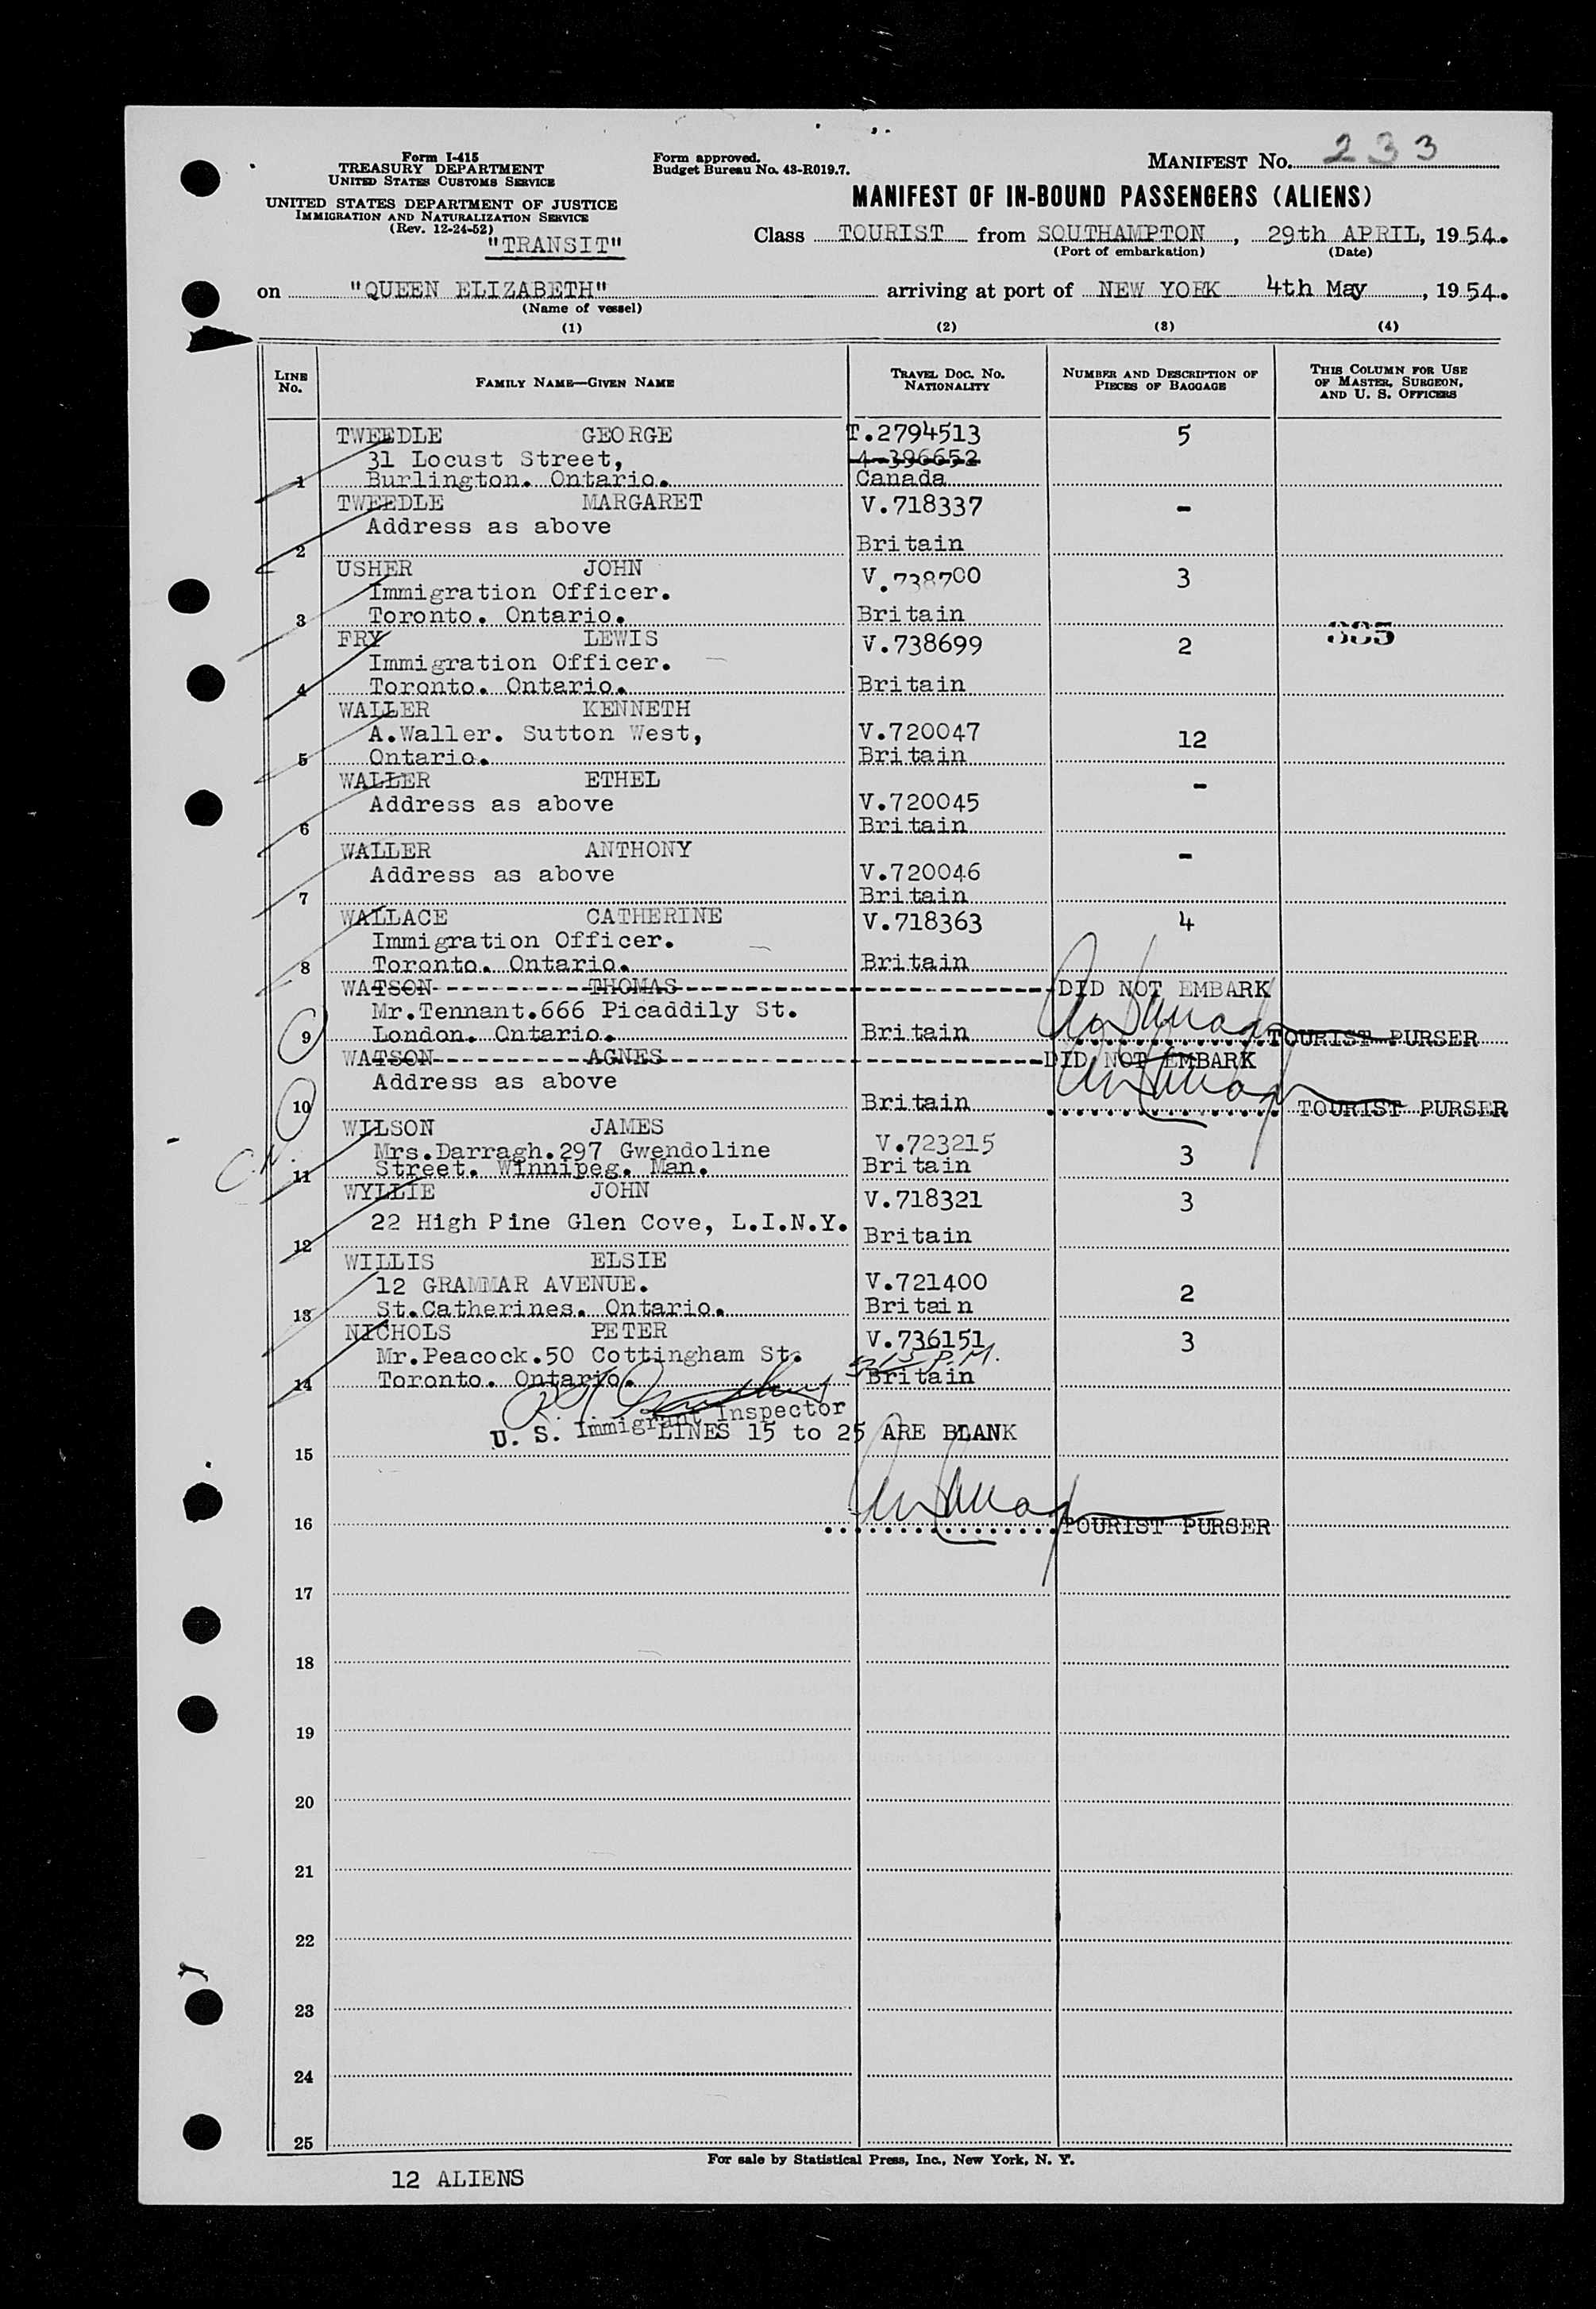 Form I-415
TREASURY DEPARTMENT
UNITED STATES CUSTOMS SERVICE
UNITED STATES DEPARTMENT OF JUSTICE
IMMIGRATION AND NATURALIZATION SERVICE
(Rev. 12-24-52)
"TRANSIT"
Form approved.
Budget Bureau No. 43-R019.7.
MANIFEST NO. 233
MANIFEST OF IN-BOUND PASSENGERS (ALIENS)
Class TOURIST from SOUTHAMPTON, 29th APRIL, 1954.
(Port of embarkation) (Date)
on "QUEEN ELIZABETH" arriving at port of NEW YORK 4th May, 1954.
(Name of vessel)
(1) (2) (3) (4)
LINE NO. FAMILY NAME—GIVEN NAME TRAVEL DOC. NO. NATIONALITY NUMBER AND DESCRIPTION OF PIECES OF BAGGAGE THIS COLUMN FOR USE OF MASTER, SURGEON, AND U. S. OFFICERS
TWEEDLE GEORGE T.2794513 5
31 Locust Street, 4-396652
1 Burlington. Ontario. Canada
TWEEDLE MARGARET V.718337 -
Address as above
2 Britain
USHER JOHN V.738700 3
Immigration Officer.
3 Toronto. Ontario. Britain
FRY LEWIS V.738699 2
Immigration Officer.
4 Toronto. Ontario. Britain
WALLER KENNETH
A.Waller. Sutton West, V.720047 12
5 Ontario. Britain
WALLER ETHEL -
Address as above V.720045
6 Britain
WALLER ANTHONY -
Address as above V.720046
7 Britain
WALLACE CATHERINE V.718363 4
Immigration Officer.
8 Toronto. Ontario. Britain
WATSON THOMAS DID NOT EMBARK
Mr.Tennant.666 Picaddily St.
9 London. Ontario. Britain TOURIST PURSER
WATSON AGNES DID NOT EMBARK
Address as above
10 Britain TOURIST PURSER
WILSON JAMES
Mrs.Darragh.297 Gwendoline V.723215 3
11 Street. Winnipeg. Man. Britain
WYLLIE JOHN V.718321 3
22 High Pine Glen Cove, L.I.N.Y.
12 Britain
WILLIS ELSIE
12 GRAMMAR AVENUE. V.721400 2
13 St.Catherines. Ontario. Britain
NICHOLS PETER V.736151 3
Mr.Peacock.50 Cottingham St. P.M.
14 Toronto. Ontario. Britain
U. S. Immigrant Inspector
LINES 15 to 25 ARE BLANK
15
16 TOURIST PURSER
17
18
19
20
21
22
23
24
25
For sale by Statistical Press, Inc., New York, N. Y.
12 ALIENS